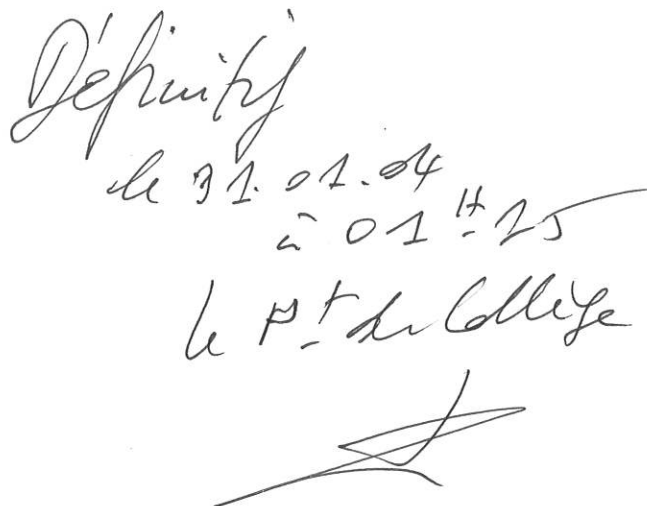 Définitif
le 31.01.04
à 01H15
le Pt du Collège